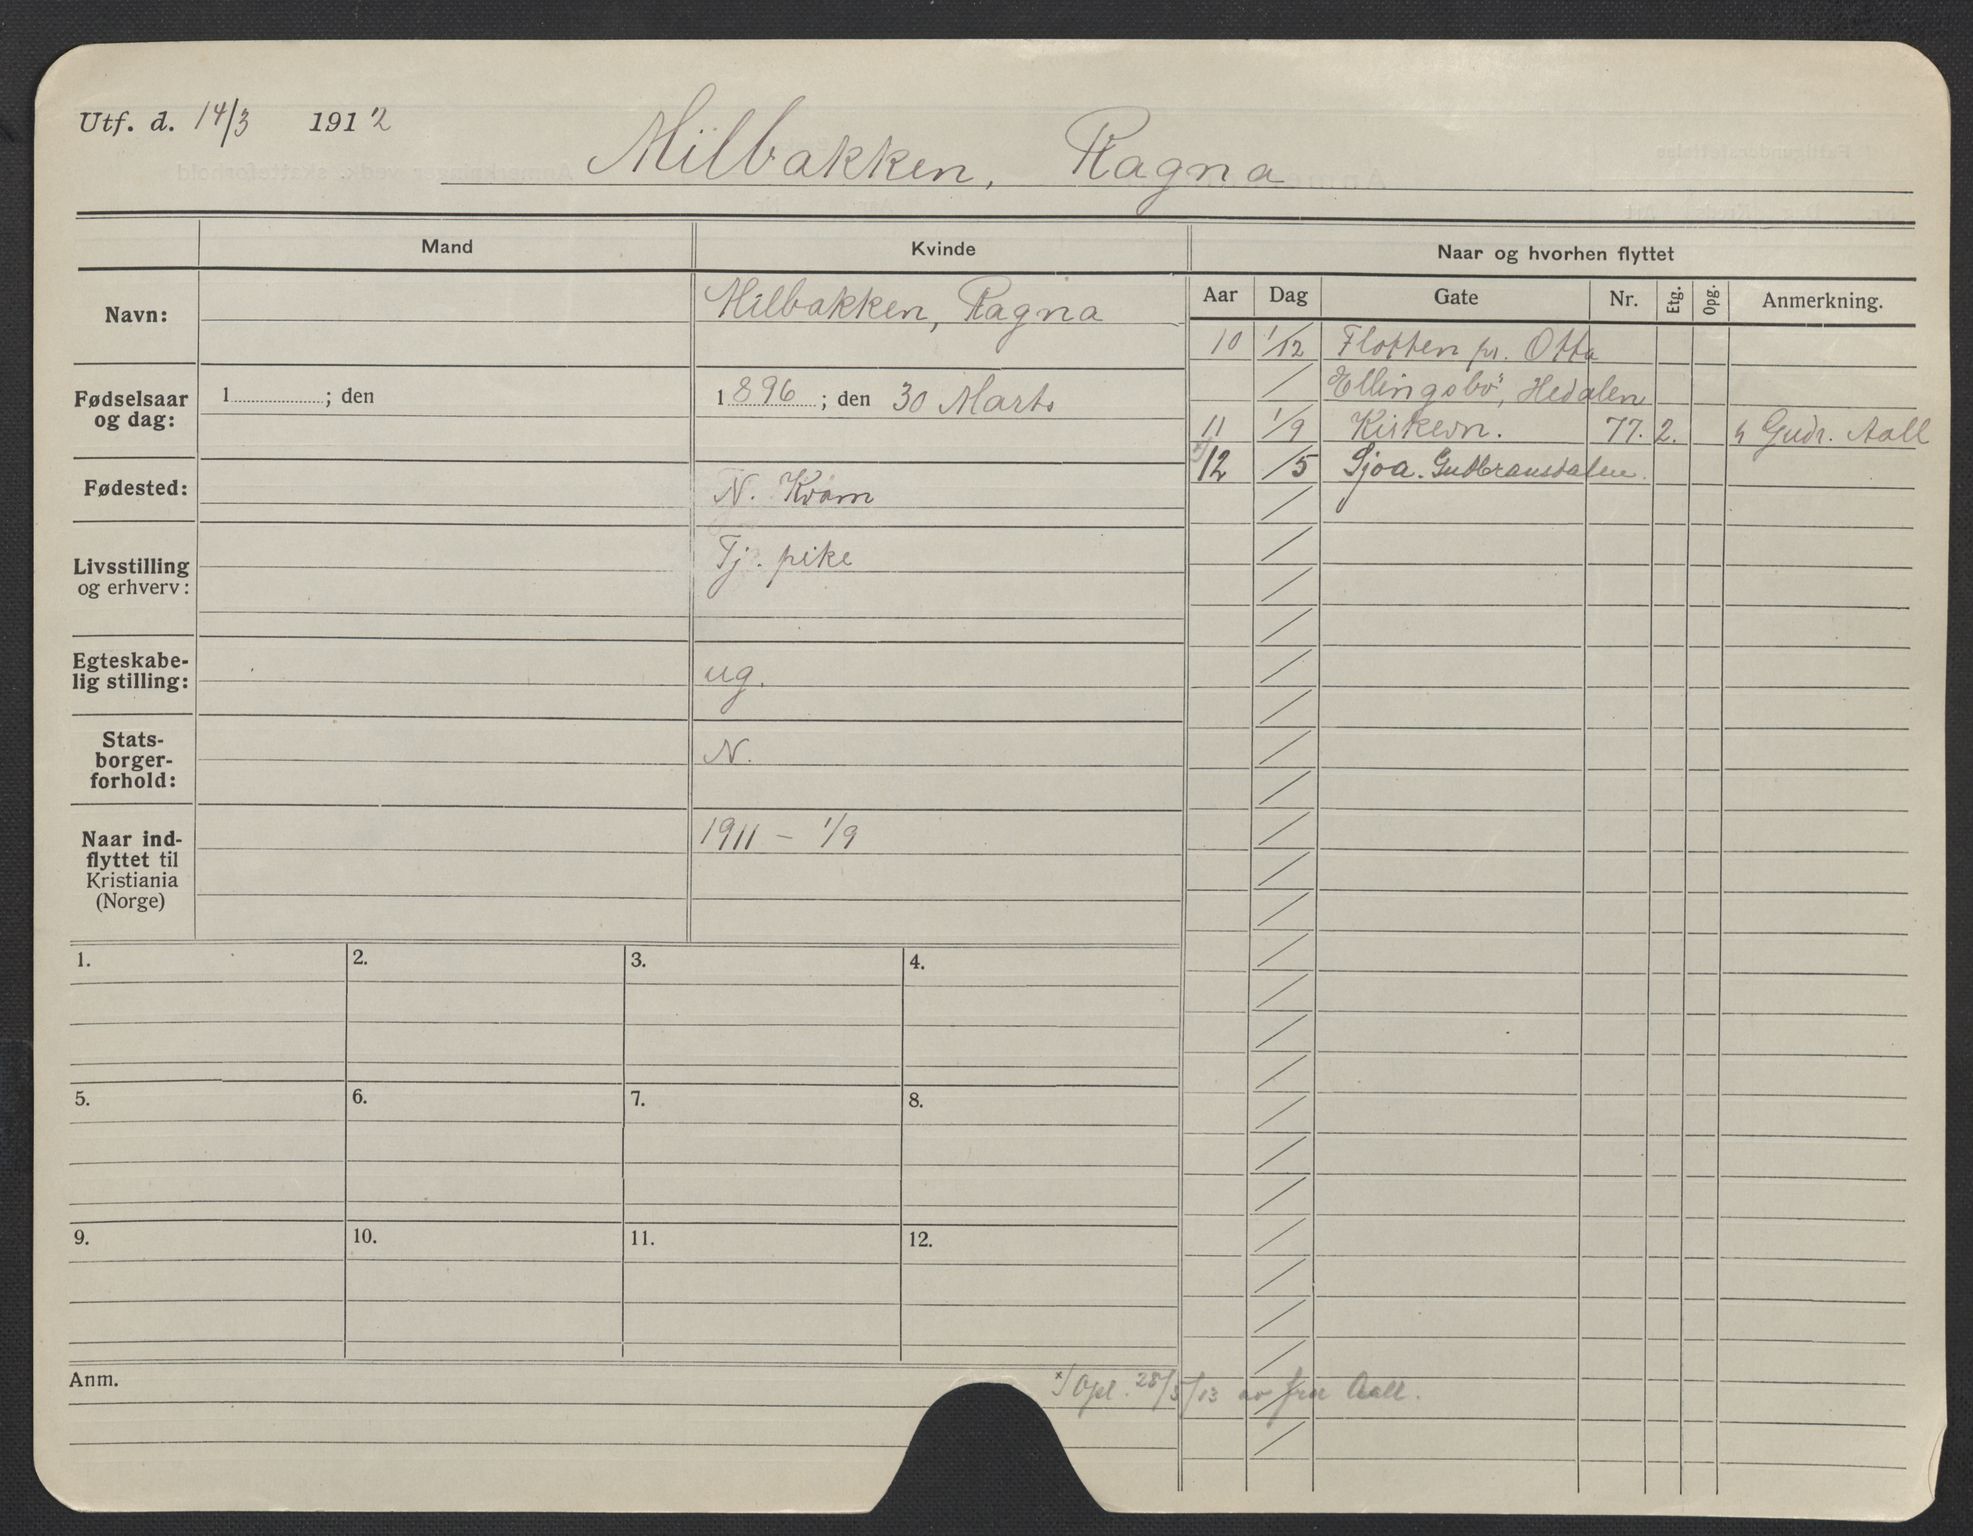 Utf. d. 14/3 1912
Milbakken, Ragna
Mand
Kvinde
Naar og hvorhen flyttet
Aar Dag Gate Nr. Etg. Opg. Anmerkning.
Navn:
Milbakken, Ragna
Fødselsaar
og dag:
1 ; den
1896 ; den 30 Marts
Fødested:
N. Kvam
Livsstilling
og erhverv:
Tj. pike
Egteskabe-
lig stilling:
ug.
Stats-
borger-
forhold:
N.
Naar ind-
flyttet til
Kristiania
(Norge)
1911 - 1/9
10 1/12 Flotten pr. Otta
/ Ellingsbø, Hedalen
11 1/9 Kirkevn. 77. 2. h Gudr. Aall
x/ 12 /5 Sjoa. Gudbransdalen.
1. 2. 3. 4.
5. 6. 7. 8.
9. 10. 11. 12.
Anm.
x/ Opl. 28/5/13 av fru Aall.